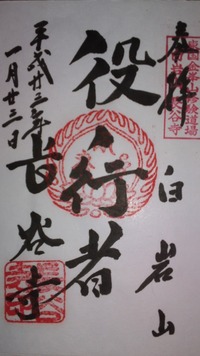 奉拝
白岩山
役行者
長谷寺
平成廿三年
一月廿三日